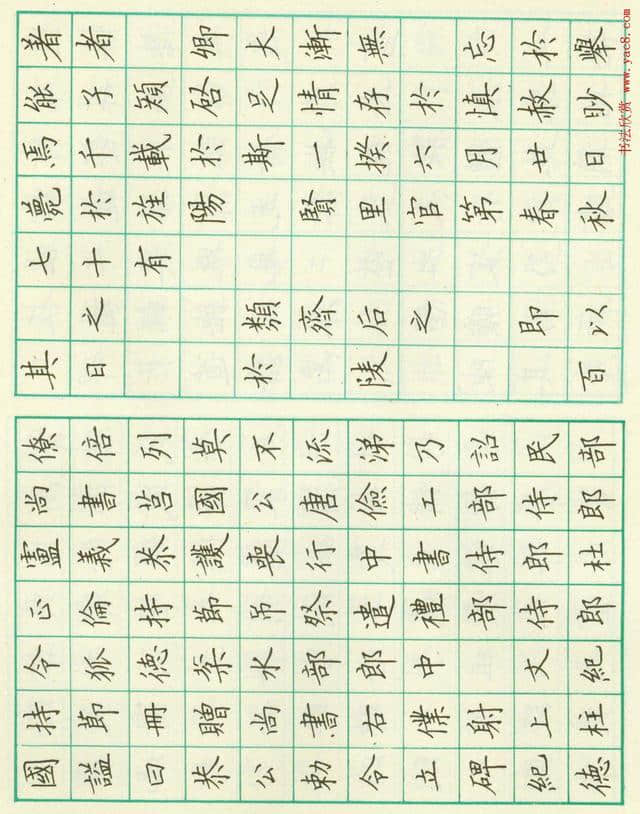 着者卿大漸無忘於舉
能子穎啓足情存於慎赦眇
馬千載於斯一揆六月廿日
薨於旌陽賢里官第春秋
七十有
之類齊后之即以
其日於陵百
僚倍列莫不流涕乃詔民部
尚書莒國公唐儉工部侍郎
盧義恭護喪行中書侍郎杜
正倫持節吊祭遣禮部侍郎
令狐德棻水部郎中文紀
持節冊贈尚書右僕射上柱
國謚曰恭公勅令立碑紀德
书法欣赏 www.yac8.com